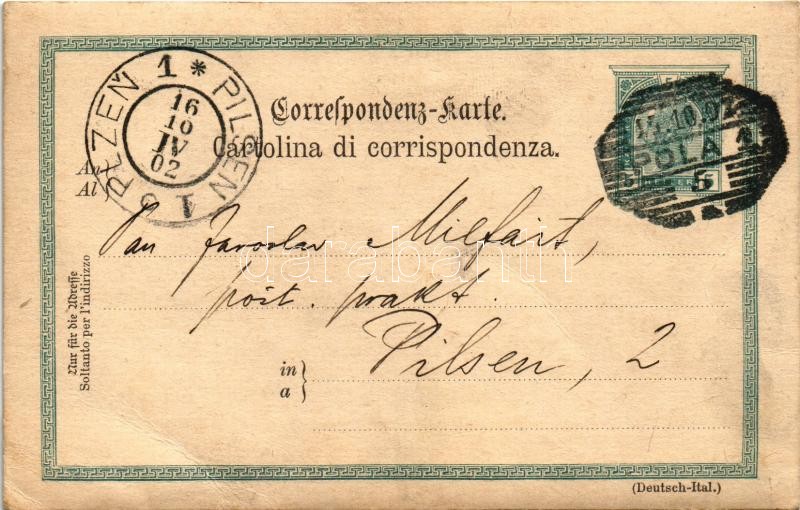 PLZEŇ 1 * PILSEN 1
16
10
IV
02
Correspondenz-Karte.
Cartolina di corrispondenza.
14.10.0
POLA
5 5
An
Al
Pan Jaroslav Milfait,
pošt. prakt.
Pilsen, 2
in
a
Nur für die Adresse
Soltanto per l'indirizzo
(Deutsch-Ital.)
darabanth